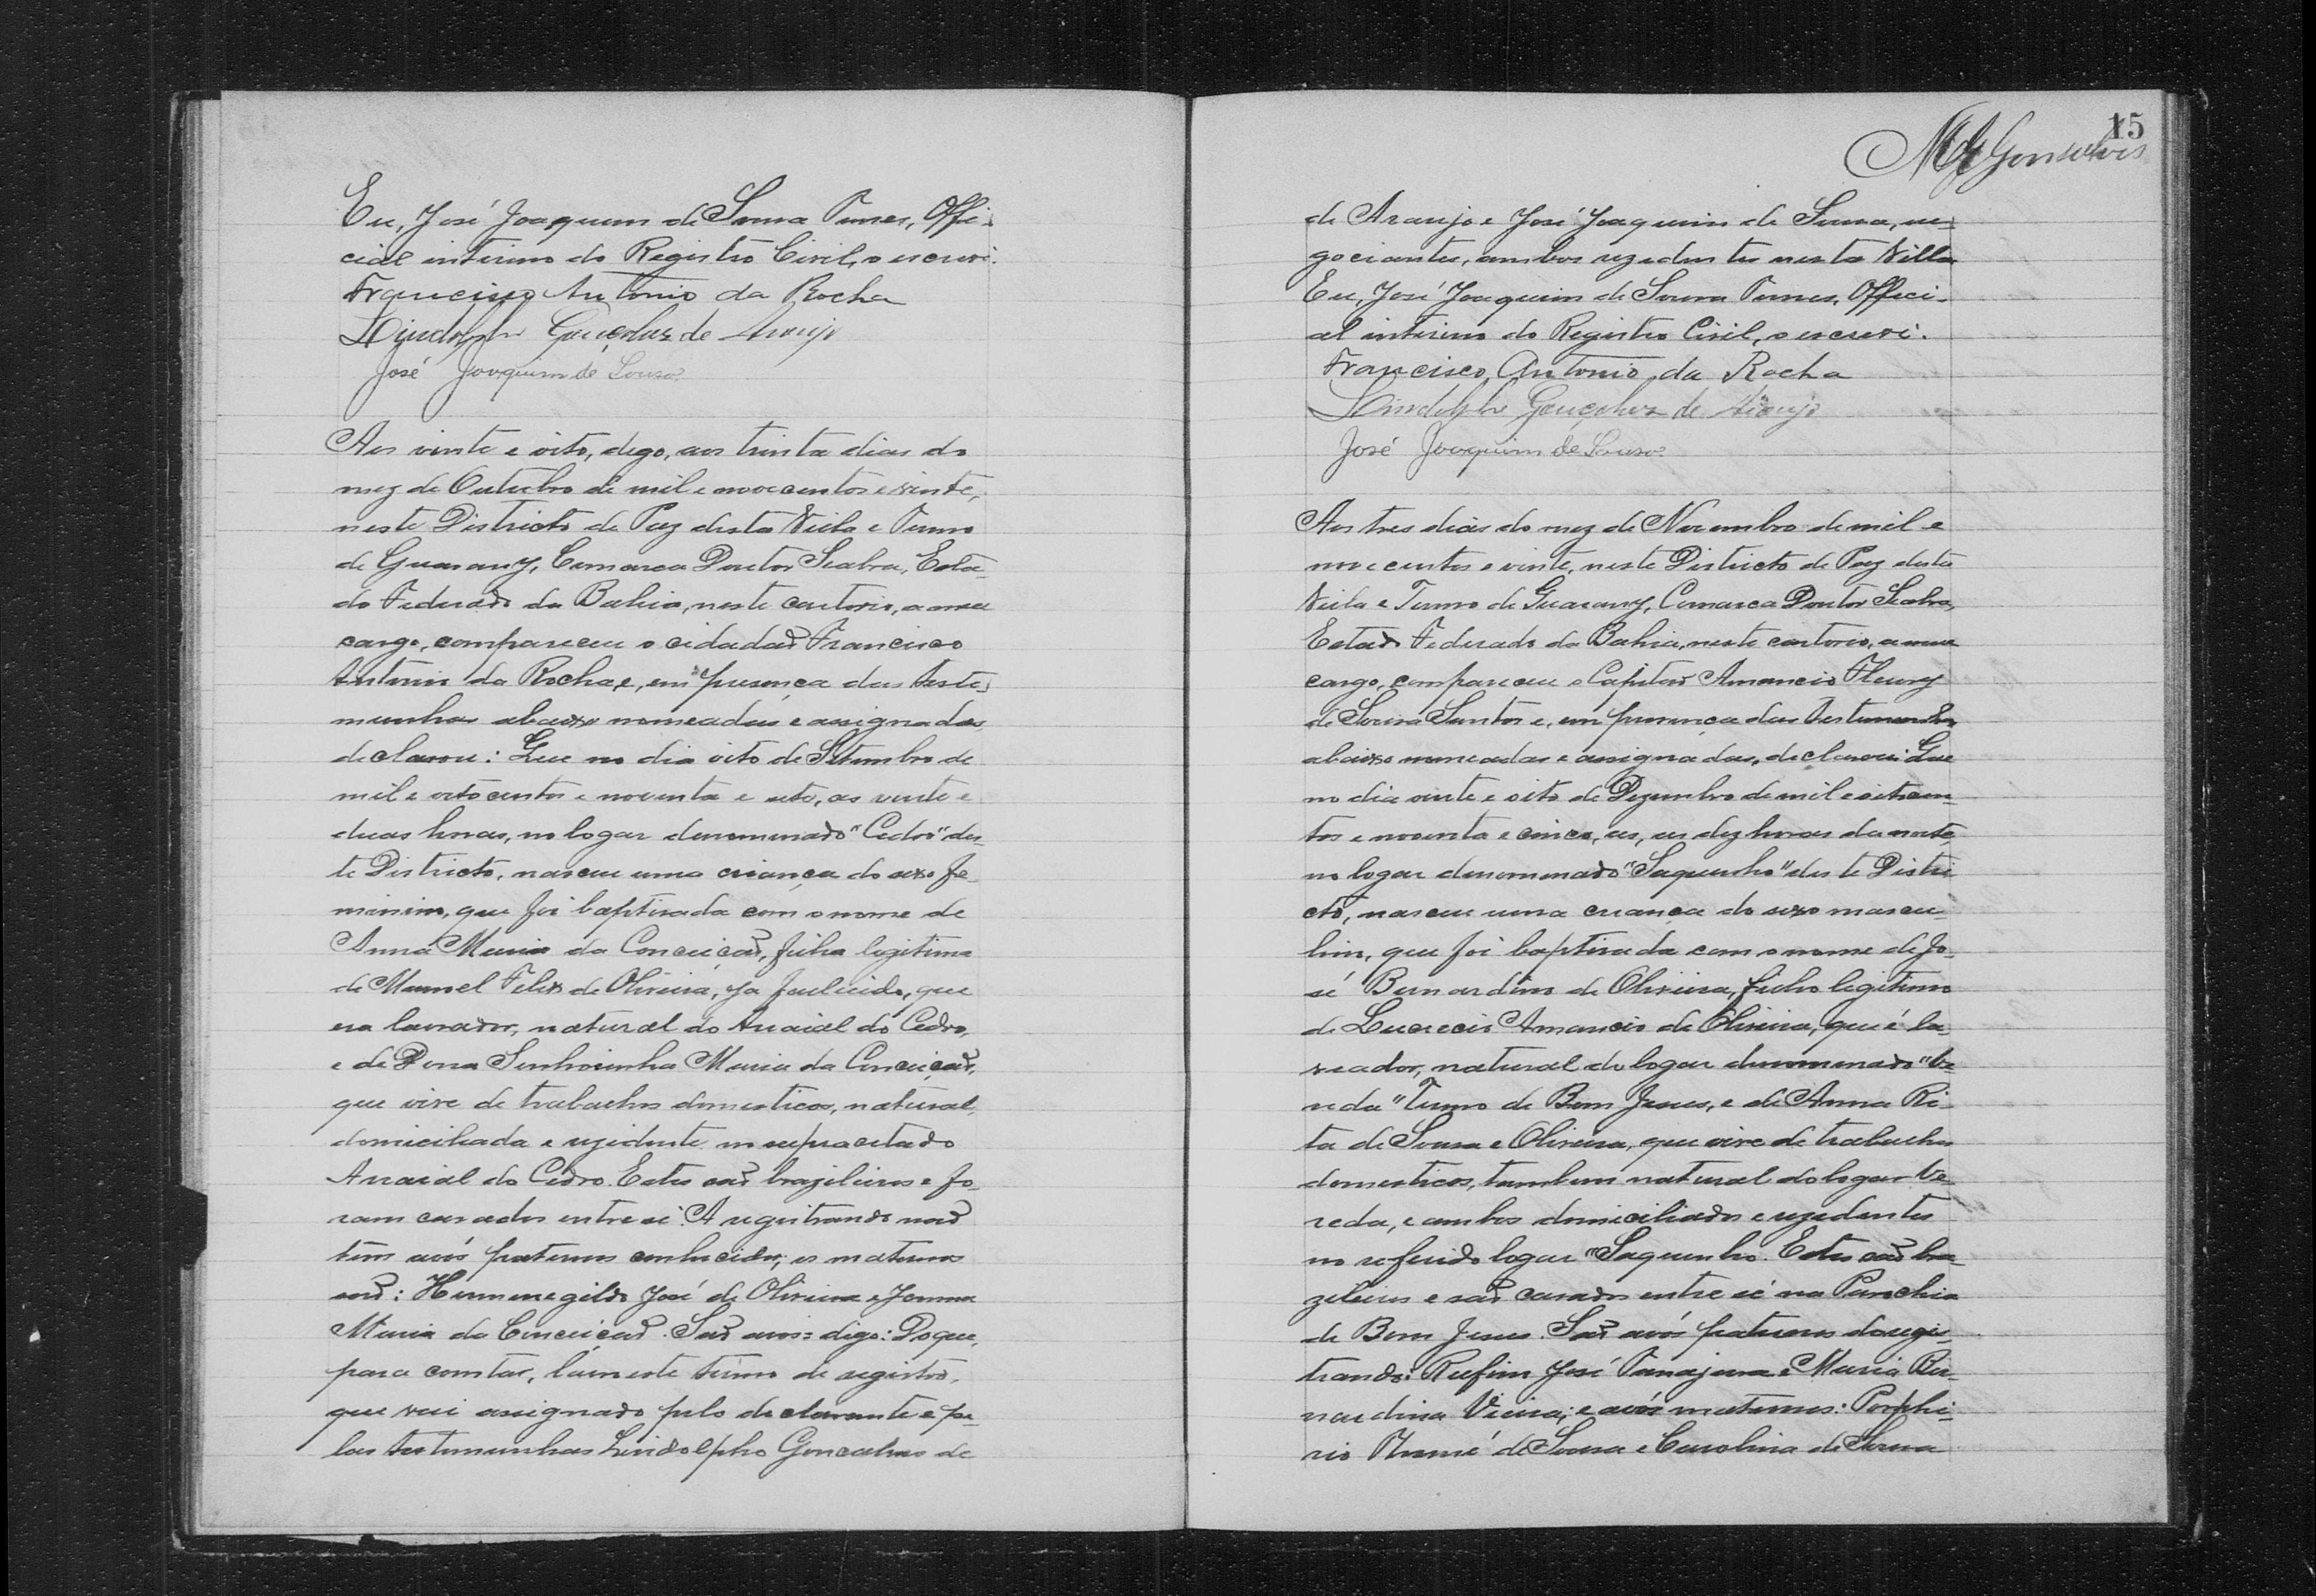 Eu, José Joaquim de Sousa Tunes, Offi-
cial interino do Registro Civil, o escrevi.
Francisco Antonio da Rocha
Lindolpho Gonçalves de Araujo
José Joaquim de Sousa.
Aos vinte e oito, digo, aos trinta dias do
mez de Outubro de mil e novecentos e vinte,
neste Districto de Paz desta Villa e Termo
de Guarany, Comarca Doutor Seabra, Esta-
do Federado da Bahia, neste cartorio, a meu
cargo, compareceu o cidadaõ Francisco
Antonio da Rocha, e, em presença das teste-
munhas abaixo nomeadas e assignadas,
declarou: Que no dia oito de Setembro de
mil e oitocentos e noventa e sete, as vinte e
duas horas, no logar denominado "Cedro" des-
te Districto, nasceu uma criança do sexo fe-
minino, que foi baptisada com o nome de
Anna Maria da Conceiçaõ, filha legitima
de Manoel Felix de Oliveira, ja fallecido, que
era lavrador, natural do Arraial do Cedro,
e de Dona Senhorinha Maria da Conceiçaõ,
que vive de trabalhos domesticos, natural,
domiciliada e rezidente no supracitado
Arraial do Cedro. Estes saõ brazileiros e fo-
ram casados entre si. A registranda naõ
tem avós paternos conhecidos; os maternos
saõ: Hermenegildo José de Oliveira e Joanna
Maria da Conceiçaõ. Saõ avos= digo: Do que,
para constar, lavrei este termo de registro,
que vai assignado pelo declarante e pe-
las testemunhas Lindolpho Gonçalves de
15
M Gonsalves
de Araujo e José Joaquim de Sousa, ne-
gociantes, ambos rezidentes nesta Villa
Eu, José Joaquim de Sousa Tunes, Offici-
al interino do Registro Civil, o escrevi.
Francisco Antonio da Rocha
Lindolpho Gonçalves de Araujo
José Joaquim de Sousa.
Aos tres dias do mez de Novembro de mil e
novecentos e vinte, neste Districto de Paz desta
Villa e Termo de Guarany, Comarca Doutor Seabra,
Estado Federado da Bahia, neste cartorio, a meu
cargo, compareceu o Capitaõ Amancio Fleury
de Sousa Santos e, em presença das testemunhas
abaixo nomeadas e assignadas, declarou: Que
no dia vinte e oito de Dezembro de mil e oitocen-
tos e noventa e cinco, as, as dez horas da noite,
no logar denominado "Saquinho" deste Distri-
cto, nasceu uma criança do sexo mascu-
lino, que foi baptisada com o nome de Jo-
sé Bernardino de Oliveira, filho legitimo
de Lucrecio Amancio de Oliveira, que é la-
vrador, natural do logar denominado "Ve-
reda" Termo de Bom Jesus, e de Anna Ri-
ta de Sousa e Oliveira, que vive de trabalhos
domesticos, tambem natural do logar Ve-
reda, e ambos domiciliados e rezidentes
no referido logar "Saquinho. Estes saõ bra-
zileiros e saõ casados entre si na Parochia
de Bom Jesus. Saõ avós paternos do regis-
trando: Rufino José Tanajura e Maria Ber-
nardina Vieira; e avós maternos: Porphi-
rio Thomé de Sousa e Carolina de Sousa